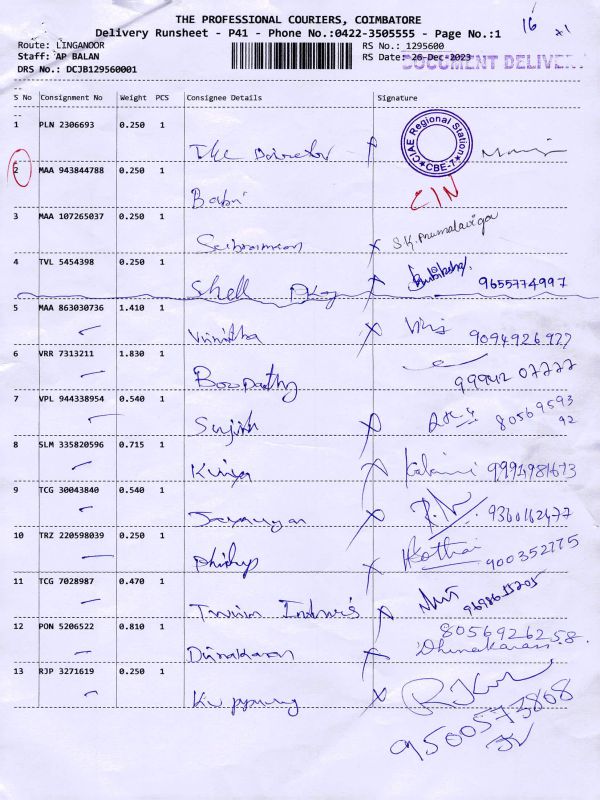 THE PROFESSIONAL COURIERS, COIMBATORE
16
x1
Delivery Runsheet - P41 - Phone No.:0422-3505555 - Page No.:1
Route: LINGANOOR
RS No.: 1295600
Staff: AP BALAN
RS Date: 26-Dec-2023
DOCUMENT DELIVERY
DRS No.: DCJB129560001
S No Consignment No Weight PCS Consignee Details Signature
1 PLN 2306693 0.250 1
The Director
CIAE Regional Station
* CBE-7 *
2 MAA 943844788 0.250 1
Babu
C/N
3 MAA 107265037 0.250 1
S.K.
4 TVL 5454398 0.250 1
Shell
9655774997
5 MAA 863030736 1.410 1
Vinitha
9094926927
6 VRR 7313211 1.830 1
Boopathy
99942 07777
7 VPL 944338954 0.540 1
Sujith
8056959392
8 SLM 335820596 0.715 1
Kalaini 9994981673
9 TCG 30043840 0.540 1
R.N 9360162477
10 TRZ 220598039 0.250 1
Philip
Kothai
900352775
11 TCG 7028987 0.470 1
12 PON 5206522 0.810 1
8056926258
Dinakaran
Dhinakaran
13 RJP 3271619 0.250 1
9500573808